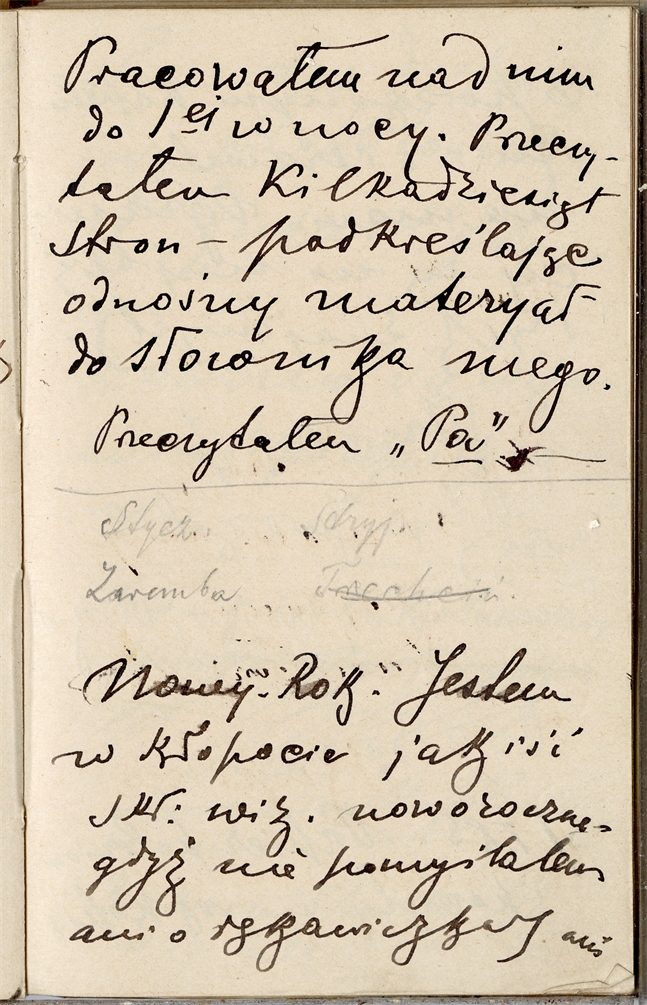 Pracowałem nad nim
do 1ej w nocy. Przeczy-
tałem Kilkadziesiąt
stron – podkreślając
odnośny materyał
do słownika mego.
Przeczytałem „Pa”
Stycz. Stryj.
Zaremba
Nowy Rok. Jestem
w kłopocie jak iść
z wiz. noworoczne-
gdyż nie pomyślałem
ani o rękawiczkach ani